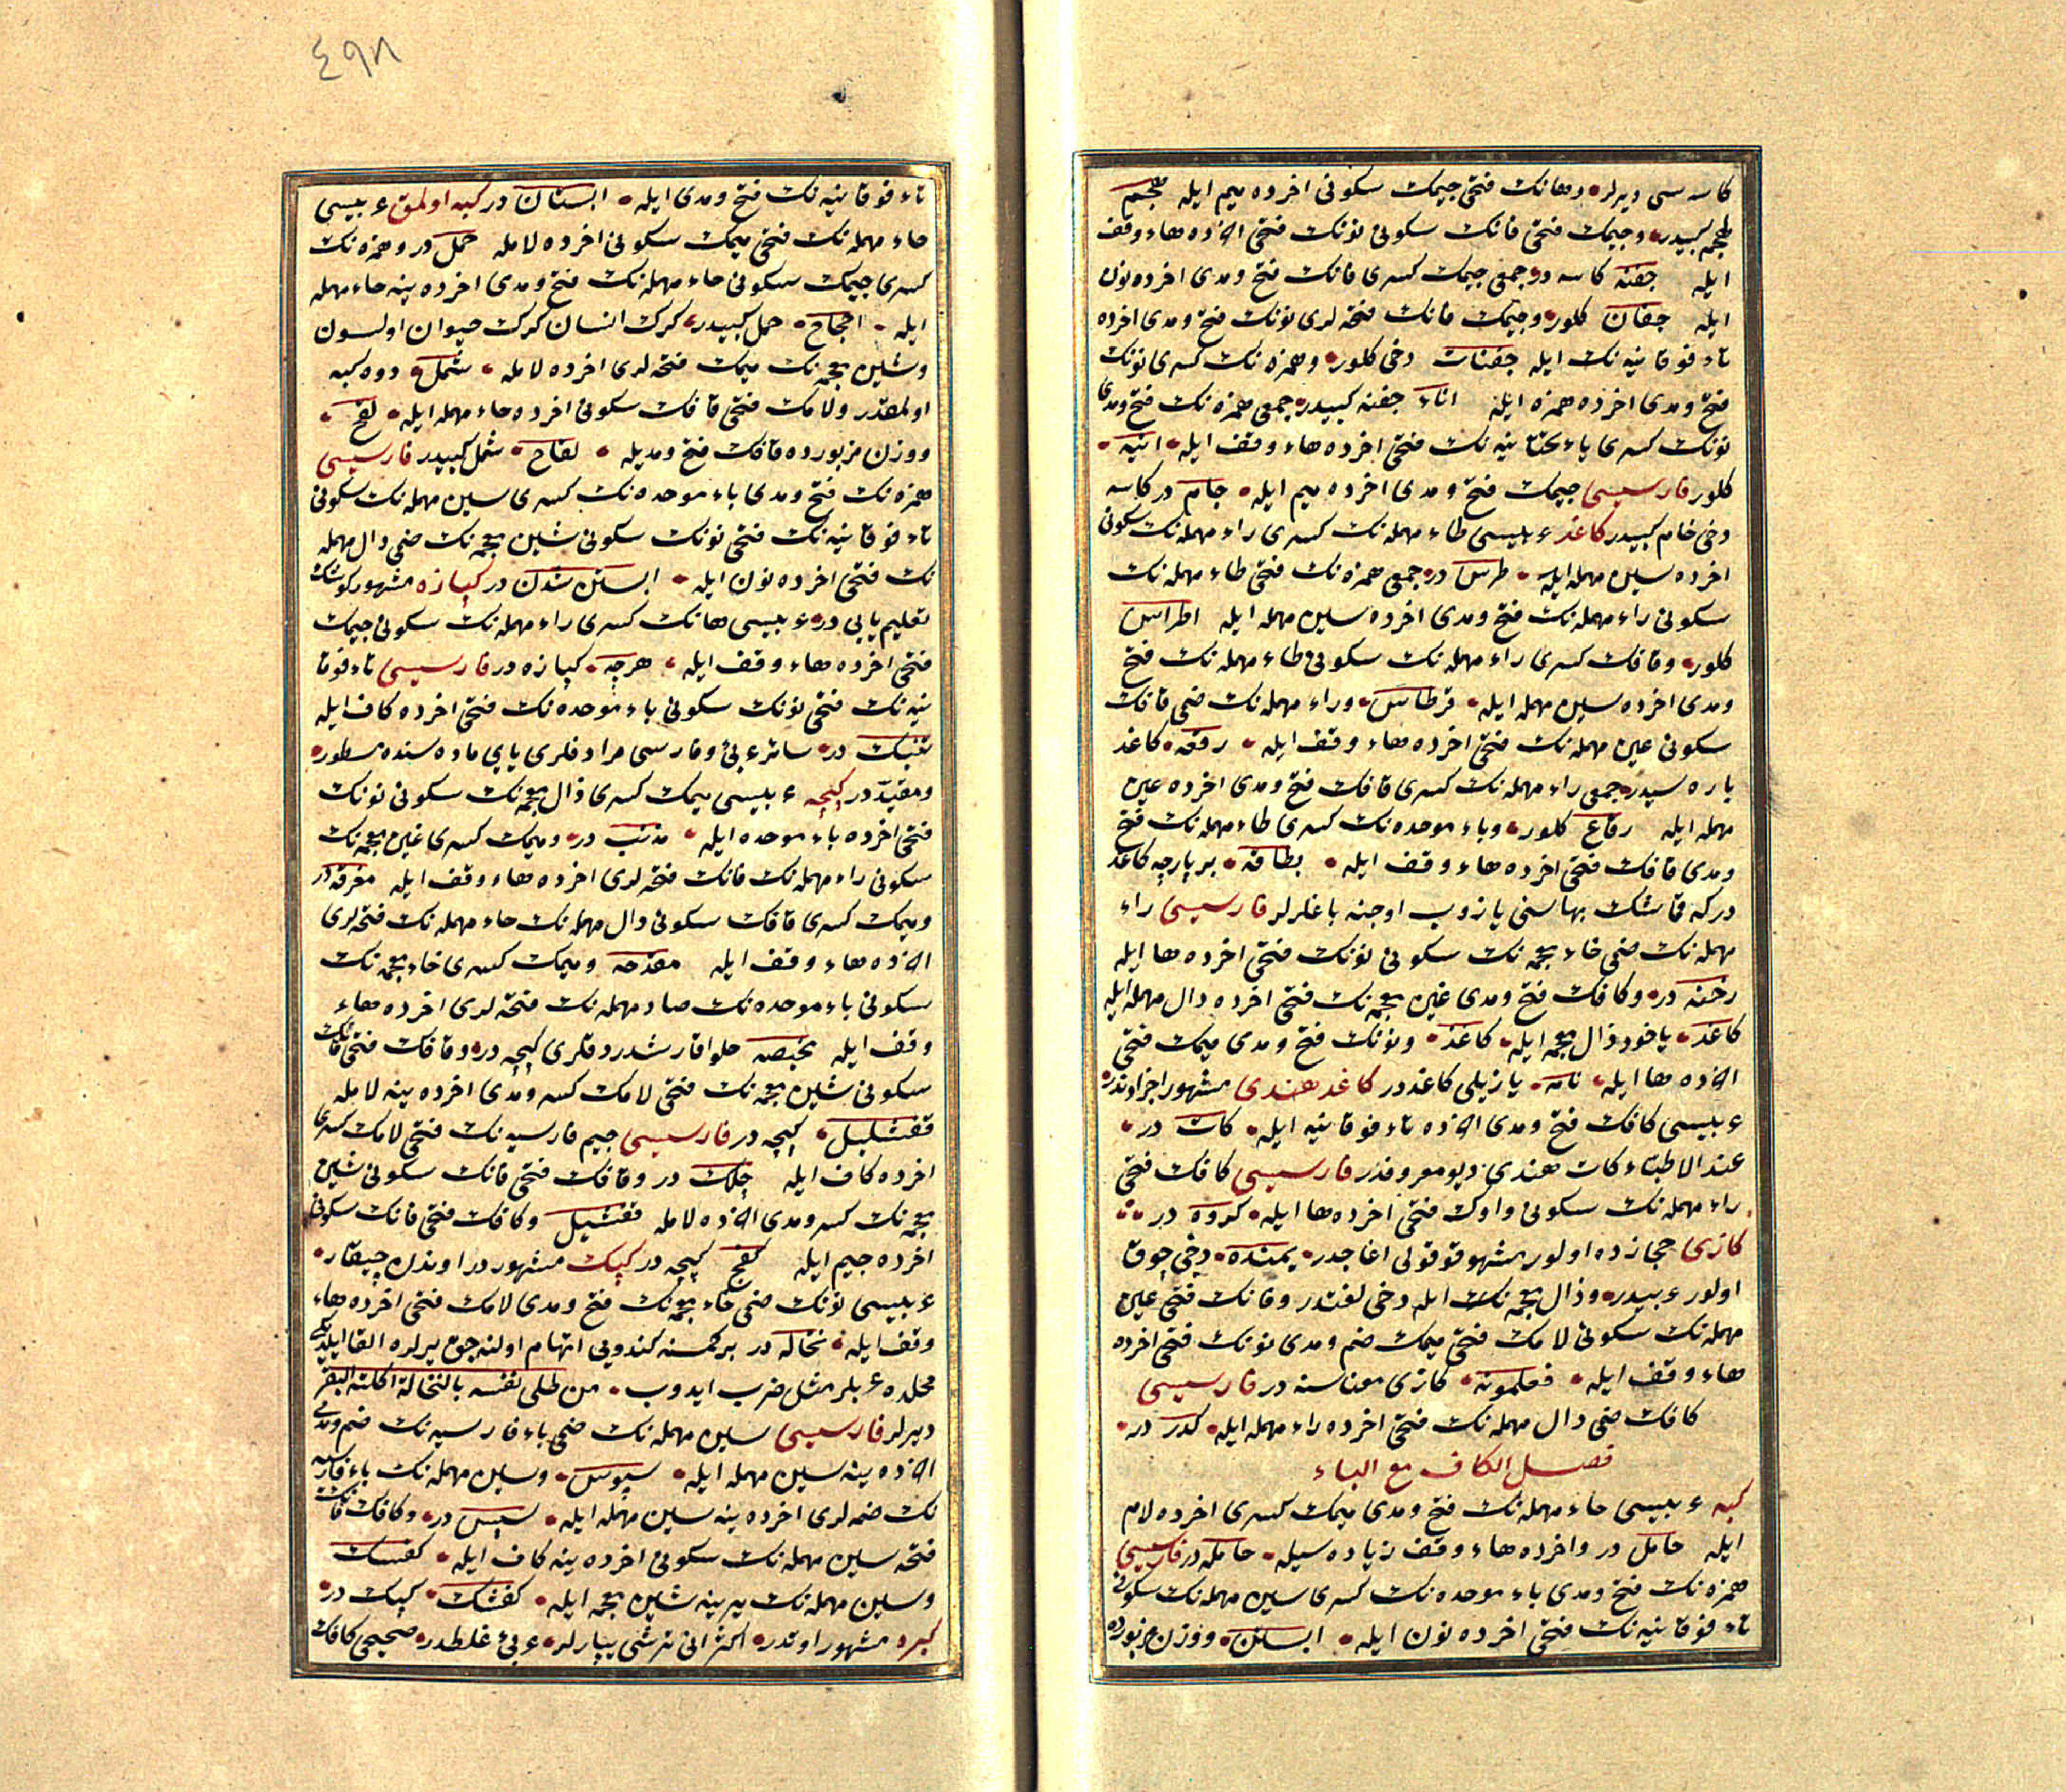 كاسه سی دیرلر وهانك فتحی جیمك سكونی اخرده میم ایله هجم
هجم كبیدر وجیمك فتحی فانك سكونی نونك فتحی اخرده هاء وقف
ایله جفنه كاسه در جمعی جیمك كسری فانك فتح ومدی اخرده نون
ایله جفان كلور وجیمك فانك فتحه لری نونك فتح ومدی اخرده
تاء فوقانیه نك ایله جفنات دخی كلور وهمزه نك كسری نونك
فتح ومدی اخرده همزه ایله اناء جفنه كبیدر جمعی همزه نك فتح ومدی
نونك كسری یاء تحتانیه نك فتحی اخرده هاء وقف ایله انیه
كلور فارسیسی جیمك فتح ومدی اخرده میم ایله جام در كاسه
دخی جام كبیدر كاغد عربیسی طاء مهمله نك كسری راء مهمله نك سكونی
اخرده سین مهمله ایله طرس در جمعی همزه نك فتحی طاء مهمله نك
سكونی راء مهمله نك فتح ومدی اخرده سین مهمله ایله اطراس
كلور وقافك كسری راء مهمله نك سكونی طاء مهمله نك فتح
ومدی اخرده سین مهمله ایله قرطاس وراء مهمله نك ضمی قافك
سكونی عین مهمله نك فتحی اخرده هاء وقف ایله رقعه كاغد
پاره سیدر جمعی راء مهمله نك كسری قافك فتح ومدی اخرده عین
مهمله ایله رقاع كلور وباء موحده نك كسری طاء مهمله نك فتح
ومدی قافك فتحی اخرده هاء وقف ایله بطاقه بر پارچه كاغد
در كه قماشك بهاسنی یازوب اوجنه باغلرلر فارسیسی راء
مهمله نك ضمی خاء معجمه نك سكونی نونك فتحی اخرده ها ایله
رخنه در وكافك فتح ومدی غین معجمه نك فتحی اخرده دال مهمله ایله
كاغد یاخود ذال معجمه ایله كاغذ ونونك فتح ومدی میمك فتحی
اخرده ها ایله نامه یازیلی كاغددر كاغد هندی مشهور اجزاوندر
عربیسی كافك فتح ومدی اخرده تاء فوقانیه ایله كات در
عند الاطباء كات هندی دیو معروفدر فارسیسی كافك فتحی
راء مهمله نك سكونی واوك فتحی اخرده ها ایله كروه در
كازی حجازده اولور مشهور قوقولی اغاجدر یمنده دخی چوق
اولور عربیدر وذال معجمه نك ایله دخی لغتدر وفانك فتحی عین
مهمله نك سكونی لامك فتحی میمك ضم ومدی نونك فتحی اخرده
هاء وقف ایله فعلمونه كازی معناسنه در فارسیسی
كافك ضمی دال مهمله نك فتحی اخرده راء مهمله ایله كدر در
فصل الكاف مع الباء
كبه عربیسی حاء مهمله نك فتح ومدی میمك كسری اخرده لام
ایله حامل در واخرده هاء وقف زیاده سیله حامله در فارسیسی
همزه نك فتح ومدی باء موحده نك كسری سین مهمله نك سكونی
تاء فوقانیه نك فتحی اخرده نون ایله ابستن ووزن مزبورده
٤٩٨
تاء فوقانیه نك فتح ومدی ایله ابستان در كبه اولمق عربیسی
حاء مهمله نك فتحی میمك سكونی اخرده لامله حمل در وهمزه نك
كسری جیمك سكونی حاء مهمله نك فتح ومدی اخرده ینه حاء مهمله
ایله اجحاح حمل كبیدر كرك انسان كرك حیوان اولسون
وشین معجمه نك میمك فتحه لری اخرده لامله شمل دوه كبه
اولمقدر ولامك فتحی قافك سكونی اخرده حاء مهمله ایله لقح
ووزن مزبورده قافك فتح ومدیله لقاح شمل كبیدر فارسیسی
همزه نك فتح ومدی باء موحده نك كسری سین مهمله نك سكونی
تاء فوقانیه نك فتحی نونك سكونی شین معجمه نك ضمی دال مهمله
نك فتحی اخرده نون ایله ابستن شدن در كپازه مشهور كوشك
تعلیم یایی در عربیسی هانك كسری راء مهمله نك سكونی جیمك
فتحی اخرده هاء وقف ایله هرجه كپازه در فارسیسی تاء فوقا
نیه نك فتحی نونك سكونی باء موحده نك فتحی اخرده كاف ایله
تنبك در سائر عربی وفارسی مرادفلری یای ماده سنده مسطور
ومقیددر كپچه عربیسی میمك كسری ذال معجمه نك سكونی نونك
فتحی اخرده باء موحده ایله مذنب در ومیمك كسری غین معجمه نك
سكونی راء مهمله نك فانك فتحه لری اخرده هاء وقف ایله مغرفه در
ومیمك كسری قافك سكونی دال مهمله نك حاء مهمله نك فتحه لری
اخرده هاء وقف ایله مقدحه ومیمك كسری خاء معجمه نك
سكونی باء موحده نك صاد مهمله نك فتحه لری اخرده هاء
وقف ایله مخبصه حلوا قارشدردقلری كپچه در وقافك فتحی فانك
سكونی شین معجمه نك فتحی لامك كسر ومدی اخرده ینه لامله
قفشلیل كپچه در فارسیسی جیم فارسیه نك فتحی لامك كسری
اخرده كاف ایله چلك در وقافك فتحی فانك سكونی شین
معجمه نك كسر ومدی اخرده لامله قفشیل وكافك فتحی فانك سكونی
اخرده جیم ایله كفج كپچه در كپك مشهوردر اوندن چیقار
عربیسی نونك ضمی خاء معجمه نك فتح ومدی لامك فتحی اخرده هاء
وقف ایله نخاله در بر كمسنه كندویی اتهام اولنه جق یرلره القا ایلدیكی
محلده عربلر مثل ضرب ایدوب من طلی نفسه بالنخالة اكلته البقر
دیرلر فارسیسی سین مهمله نك ضمی باء فارسیه نك ضم ومدی
اخرده ینه سین مهمله ایله سپوس وسین مهمله نك باء فارسیه
نك ضمه لری اخرده ینه سین مهمله ایله سپس در وكافك فانك
فتحه سین مهمله نك سكونی اخرده ینه كاف ایله كفسك
وسین مهمله نك یرینه شین معجمه ایله كفشك كپك در
كبره مشهور اوتدر اكثر انی ترشی یپارلر عربی غلطدر صحیحی كافك